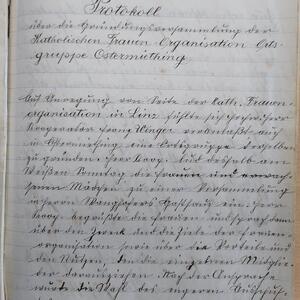 Protokoll
über die Gründungsversammlung der
Katholischen Frauen-Organisation Orts-
gruppe Ostermiething.
Auf Anregung von Seite der Kath. Frauen-
organisation in Linz fühlte sich hochw. Herr
Kooperator Franz Unger veranlaßt, auch
in Ostermiething eine Ortsgruppe derselben
zu gründen. Herr Koop. lud deshalb am
Weißen Sonntag die Frauen und erwach-
senen Mädchen zu einer Versammlung
in Herrn Gasthaus ein. Herr
Koop. begrüßte die Frauen und sprach dann
über den Zweck und die Ziele der Frauen-
organisation sowie über die Vorteile und
den Nutzen, den die einzelnen Mitglie-
der daraus ziehen. Nach der Ansprache
wurde die Wahl des engeren Ausschus-